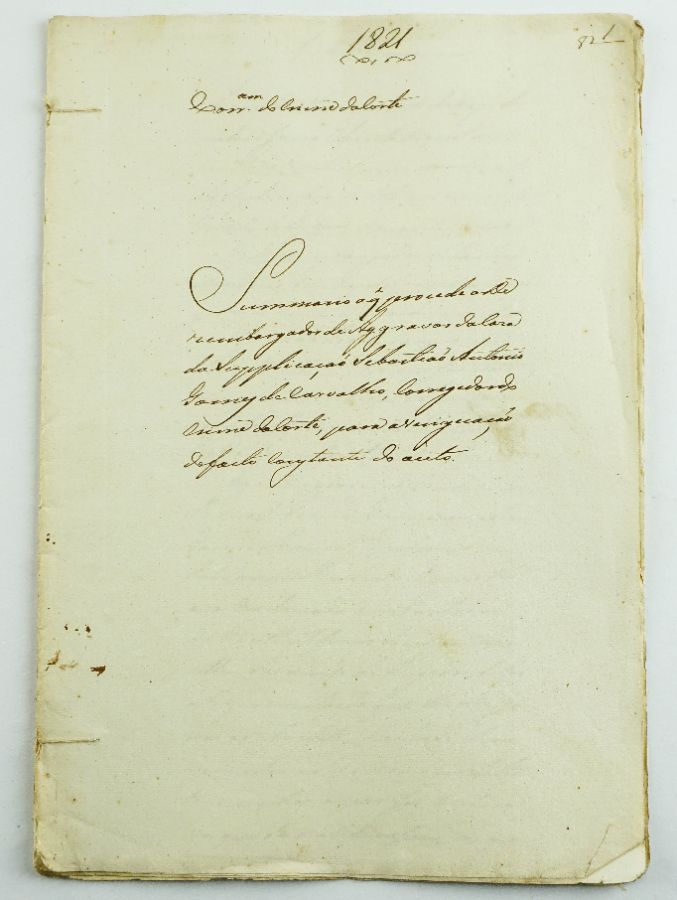 1821
1
do Crime da Corte
Summario a q̃ procede o De
zembargador de Aggravos da Caza
da Supplicação Sebastião Antonio
Gomes de Carvalho, Corregedor do
Crime da Corte, para averiguação
do facto constante do auto.